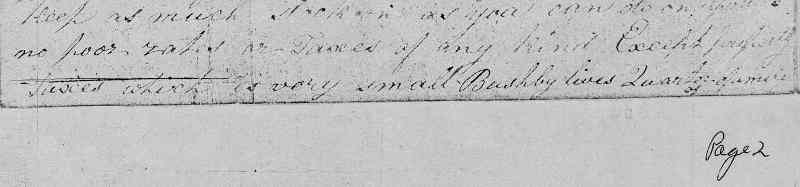 Keep as much Stock as you can do
no poor rates or Taxces of any kind Except
Taxces which is very small Bushby lives Quarter of a mile
Page 2